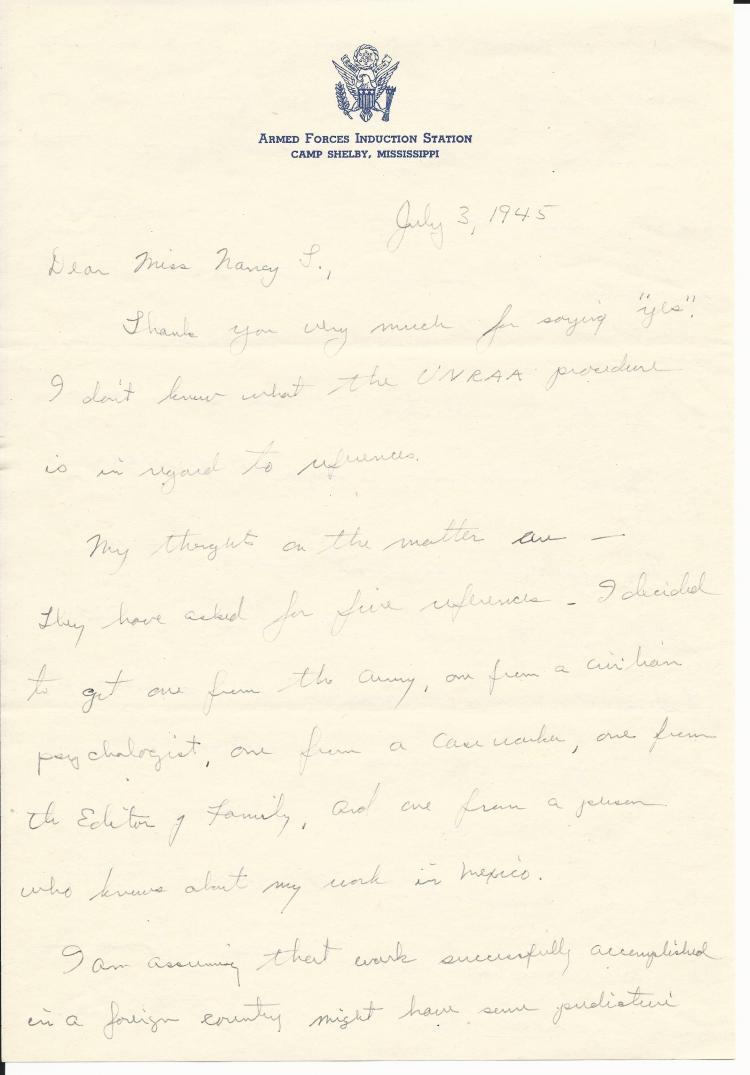 ARMED FORCES INDUCTION STATION
CAMP SHELBY, MISSISSIPPI
July 3, 1945
Dear Miss Nancy L.,
Thank you very much for saying "yes".
I don't know what the UNRAA procedure
is in regard to references.
My thoughts on the matter are —
They have asked for five references - I decided
to get one from the Army, one from a civilian
psychologist, one from a case worker, one from
the Editor of Family, and one from a person
who knows about my work in Mexico.
I am assuming that work successfully accomplished
in a foreign country might have some predictive